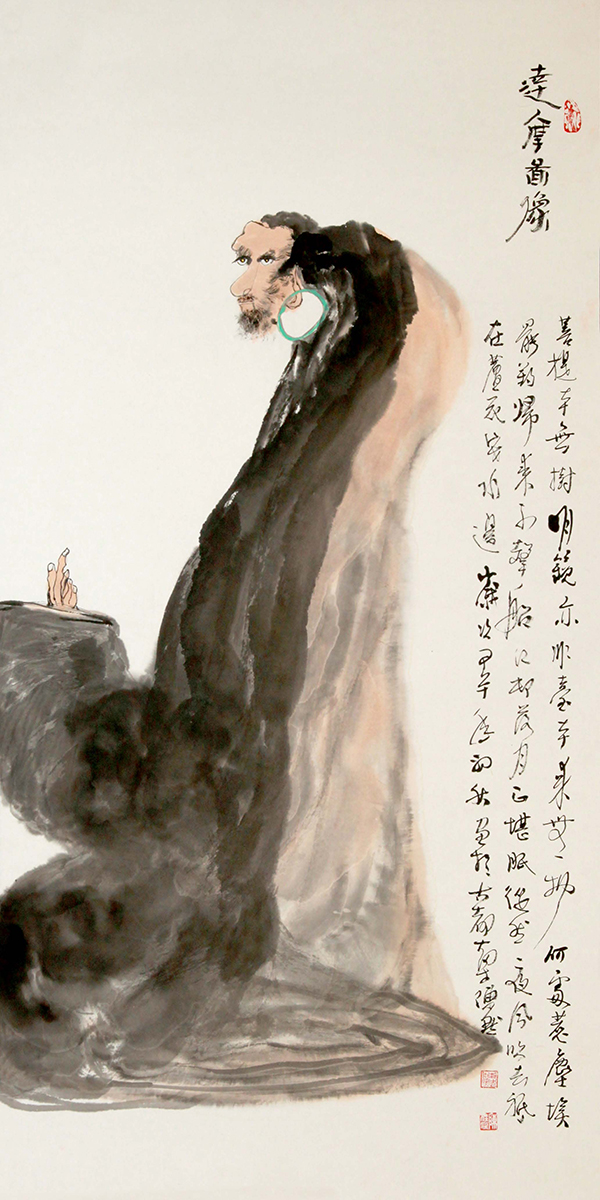 達摩圖像
菩提本無樹明鏡亦非臺本來無一物何處惹塵埃
罷釣歸來不繫船江邨落月正堪眠縱然一夜風吹去祇
在蘆花淺水邊 歲次甲午年初秋畫於古都大梁